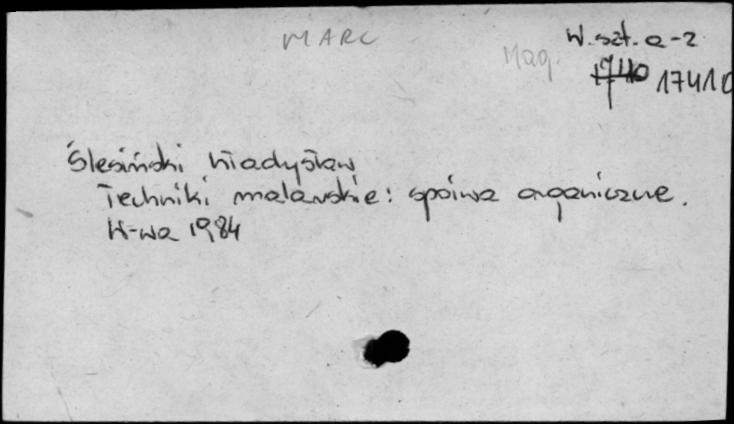 MARC
W. szt. a-z
Mag.
17410
Ślesiński Władysław
Techniki malarskie: spoiwa organiczne.
W-wa 1984